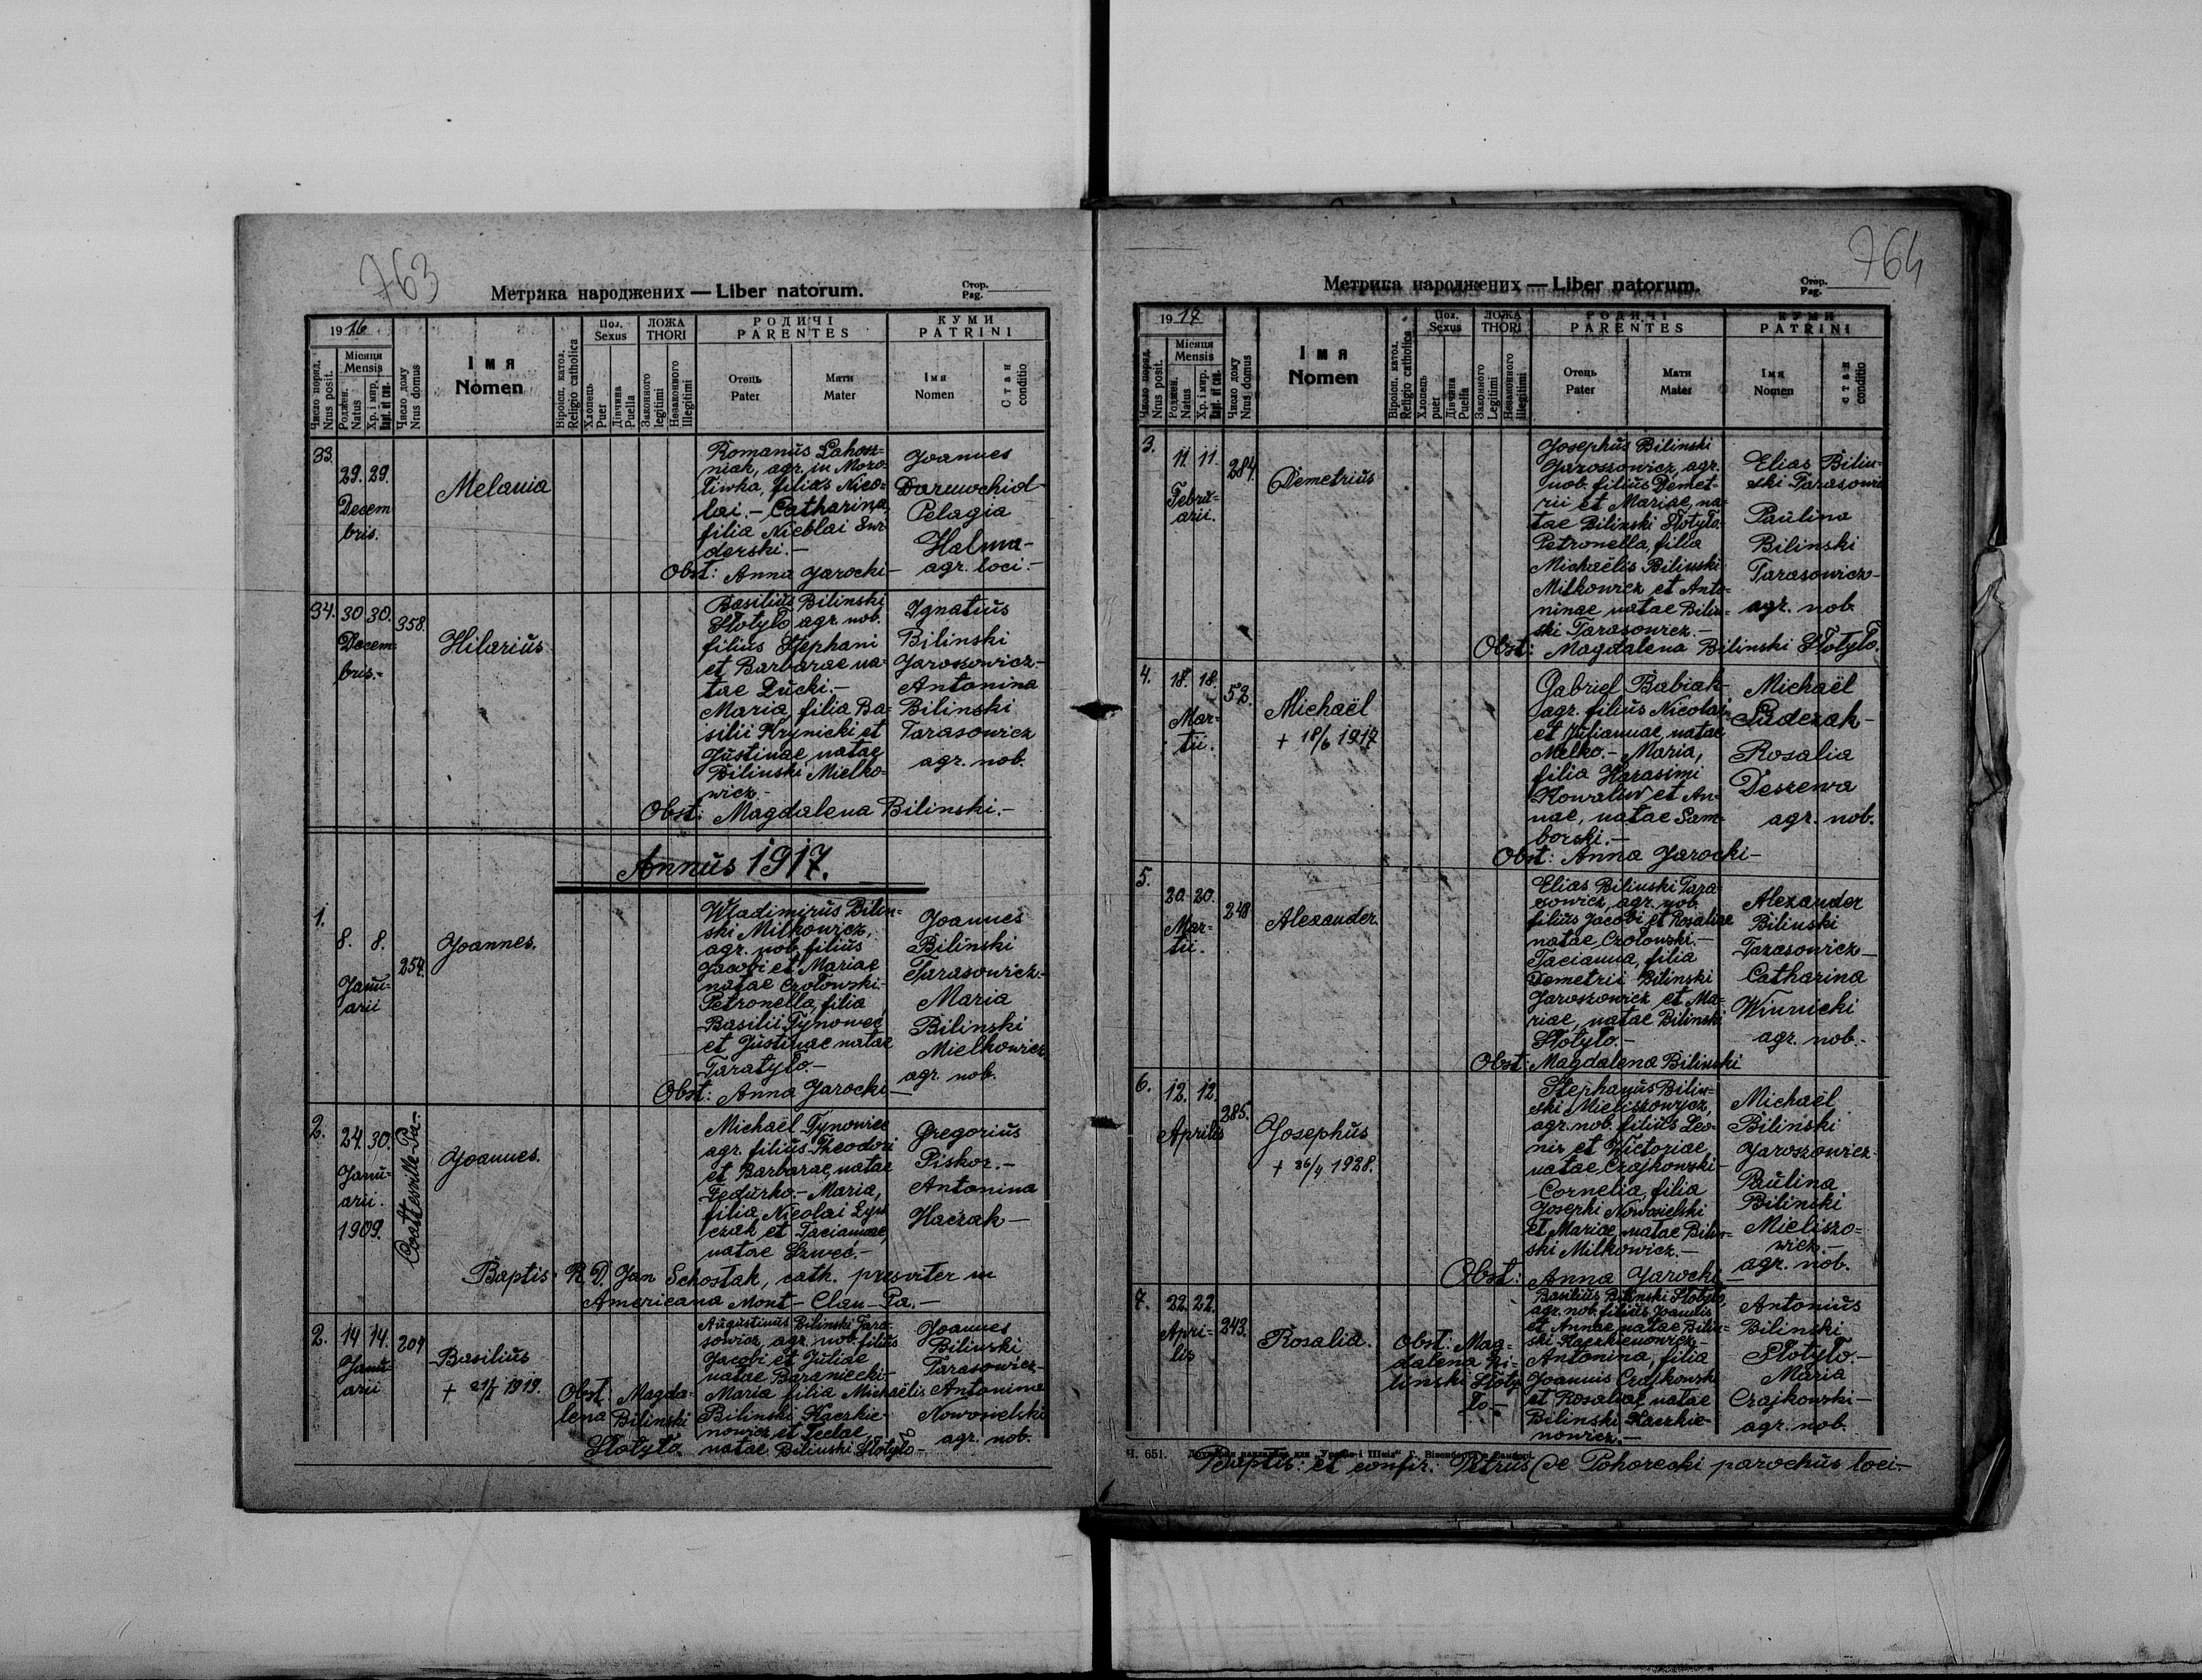 763
Метрика народжених — Liber natorum.
Стор.
Pag.
1916
Число поряд.
Nrus posit.
Місяця
Mensis
Роджен.
Natus
Хр. і мир.
Bapt. et con.
Число дому
Nrus domus
Імя
Nomen
Віроісп. катол.
Religio catholica
Пол.
Sexus
Хлопець
Puer
Дівчина
Puella
ЛОЖА
THORI
Законного
legitimi
Незаконного
Illegitimi
РОДИЧІ
PARENTES
Отець
Pater
Мати
Mater
КУМИ
PATRINI
Імя
Nomen
Стан
conditio
33.
29. 29.
Decem
bris.
Melania
Romanus Lahosz-
niak, agr. in Mozo-
liwka, filias Nico=
lai. – Catharina,
filia Nicolai
derski. –
Obst: Anna Jarocki –
Joannes
Pelagia
Halwa –
agr. loci. –
34. 30 30. 358.
Decem=
bris. –
Hilarius
Basilius Bilinski
Slotylo agr. nob.
filius Stephani
et Barbarae na-
tae Lucki. –
Maria, filia Ba=
silii Krynicki et
Justinae, natae
Bilinski Mielko-
wicz –
Obst: Magdalena Bilinski. –
Ignatius
Bilinski
Jaroszowicz. –
Antonina
Bilinski
Tarasowicz
agr. nob.
Annus 1917.
1.
8. 8. 254.
Janu=
arii
Joannes.
Wladimirus Bilin=
ski Milkowicz,
agr. nob, filius
Jacobi et Mariae
natae Czolowski –
Petronella, filia
Basilii Tynowec
et Justinae natae
Taratylo. –
Obst: Anna Jarocki –
Joannes
Bilinski
Tarasowicz –
Maria
Bilinski
Mielkowicz
agr. nob.
2.
24. 30.
Janu=
arii.
1909.
Coattesville-Pa-.
Joannes.
Michaël Tynowiec
agr. filius Theodori
et Barbarae, natae
Fedurko. – Maria,
filia Nicolai
czak et Tacianae,
natae Szweć. –
Gregorius
Piskor. –
Antonina
Haczak –
Baptis: R. D. Jan Schostak, cath. presviter in
Americana Mont – Clau – Pa. –
2. 14 14. 204
Janu=
arii
Basilius
+ 1919.
Obst: Magda-
lena Bilinski
Slotylo.
Augustinus Bilinski Tara=
sowicz, agr. nob. filius
Jacobi et Juliae
natae Baraniecki –
Maria filia Michaëlis
Bilinski Kaczkie-
nowicz et Teclae,
natae Bilinski Slotylo –
Joannes
Bilinski
Tarasowicz –
Antonina
Nowosielski
agr. nob.
764
Метрика народжених — Liber natorum.
Стор.
Pag.
1917
Число поряд.
Nrus posit.
Місяця
Mensis
Роджен.
Natus
Хр. і мир.
Bapt. et con.
Число дому
Nrus domus
Імя
Nomen
Віроісп. катол.
Religio catholica
Пол.
Sexus
Хлопець
puer
Дівчина
Puella
ЛОЖА
THORI
Законного
Legitimi
Незаконного
Illegitimi
РОДИЧІ
PARENTES
Отець
Pater
Мати
Mater
КУМИ
PATRINI
Імя
Nomen
Стан
conditio
3.
11. 11. 284.
Febru=
arii.
Demetrius
Josephus Bilinski
Jaroszowicz, agr.
nob. filius Demet-
rii et Mariae, na-
tae Bilinski Slotylo.
Petronella, filia
Michaëlis Bilinski
Milkowicz et Anto-
ninae natae Bilin-
ski Tarasowicz. –
Obst: Magdalena Bilinski Slotylo.
Elias Bilin-
ski Tarasowicz
Paulina
Bilinski
Tarasowicz –
agr. nob.
4.
18. 18. 52.
Mar-
tii.
Michaël
+ 18/6 1917
Gabriel Babiak –
agr. filius Nicolai
et Julianae, natae
Melko. – Maria,
filia Harasimi
Kowaluv et An-
nae, natae Sam-
borski. –
Obst: Anna Jarocki –
Michaël
Rosalia
Deszewa
agr. nob.
5.
20. 20. 248
Mar-
tii.
Alexander
Elias Bilinski Tara-
sowicz, agr. nob.
filius Jacobi et Rosaliae
natae Czolowski. –
Tacianna, filia
Demetrii Bilinski
Jaroszowicz et Ma-
riae, natae Bilinski
Slotylo. –
Obst: Magdalena Bilinski
Alexander
Bilinski
Tarasowicz –
Catharina
Winnicki
agr. nob. –
6.
12. 12. 285.
Aprilis
Josephus
+ 26/4 1928.
Stephanus Bilin-
ski Mieliszowicz,
agr. nob. filius Leo-
nis et Victoriae,
natae Czajkowski –
Cornelia, filia
Josephi Nowosielski
et Mariae, natae Bilin=
ski Milkowicz. –
Obst: Anna Jarocki –
Michaël
Bilinski
Jaroszowicz –
Paulina
Bilinski
Mieliszo=
wicz. –
agr. nob.
7.
22. 22. 243.
Apri-
lis
Rosalia.
Obst: Mag=
dalena Bi-
linski Sloty
lo –
Basilius Bilinski Slotylo,
agr. nob. filius Joannis
et Annae natae Bilin-
ski Kaczkienowicz –
Antonina, filia
Joannis Czajkowski
et Rosaliae natae
Bilinski Kaczkie-
nowicz. –
Antonius
Bilinski
Slotylo. –
Maria
Czajkowski –
agr. nob.
Ч. 651.
Baptis: et confir: Petrus de Pohorecki parochus loci. –